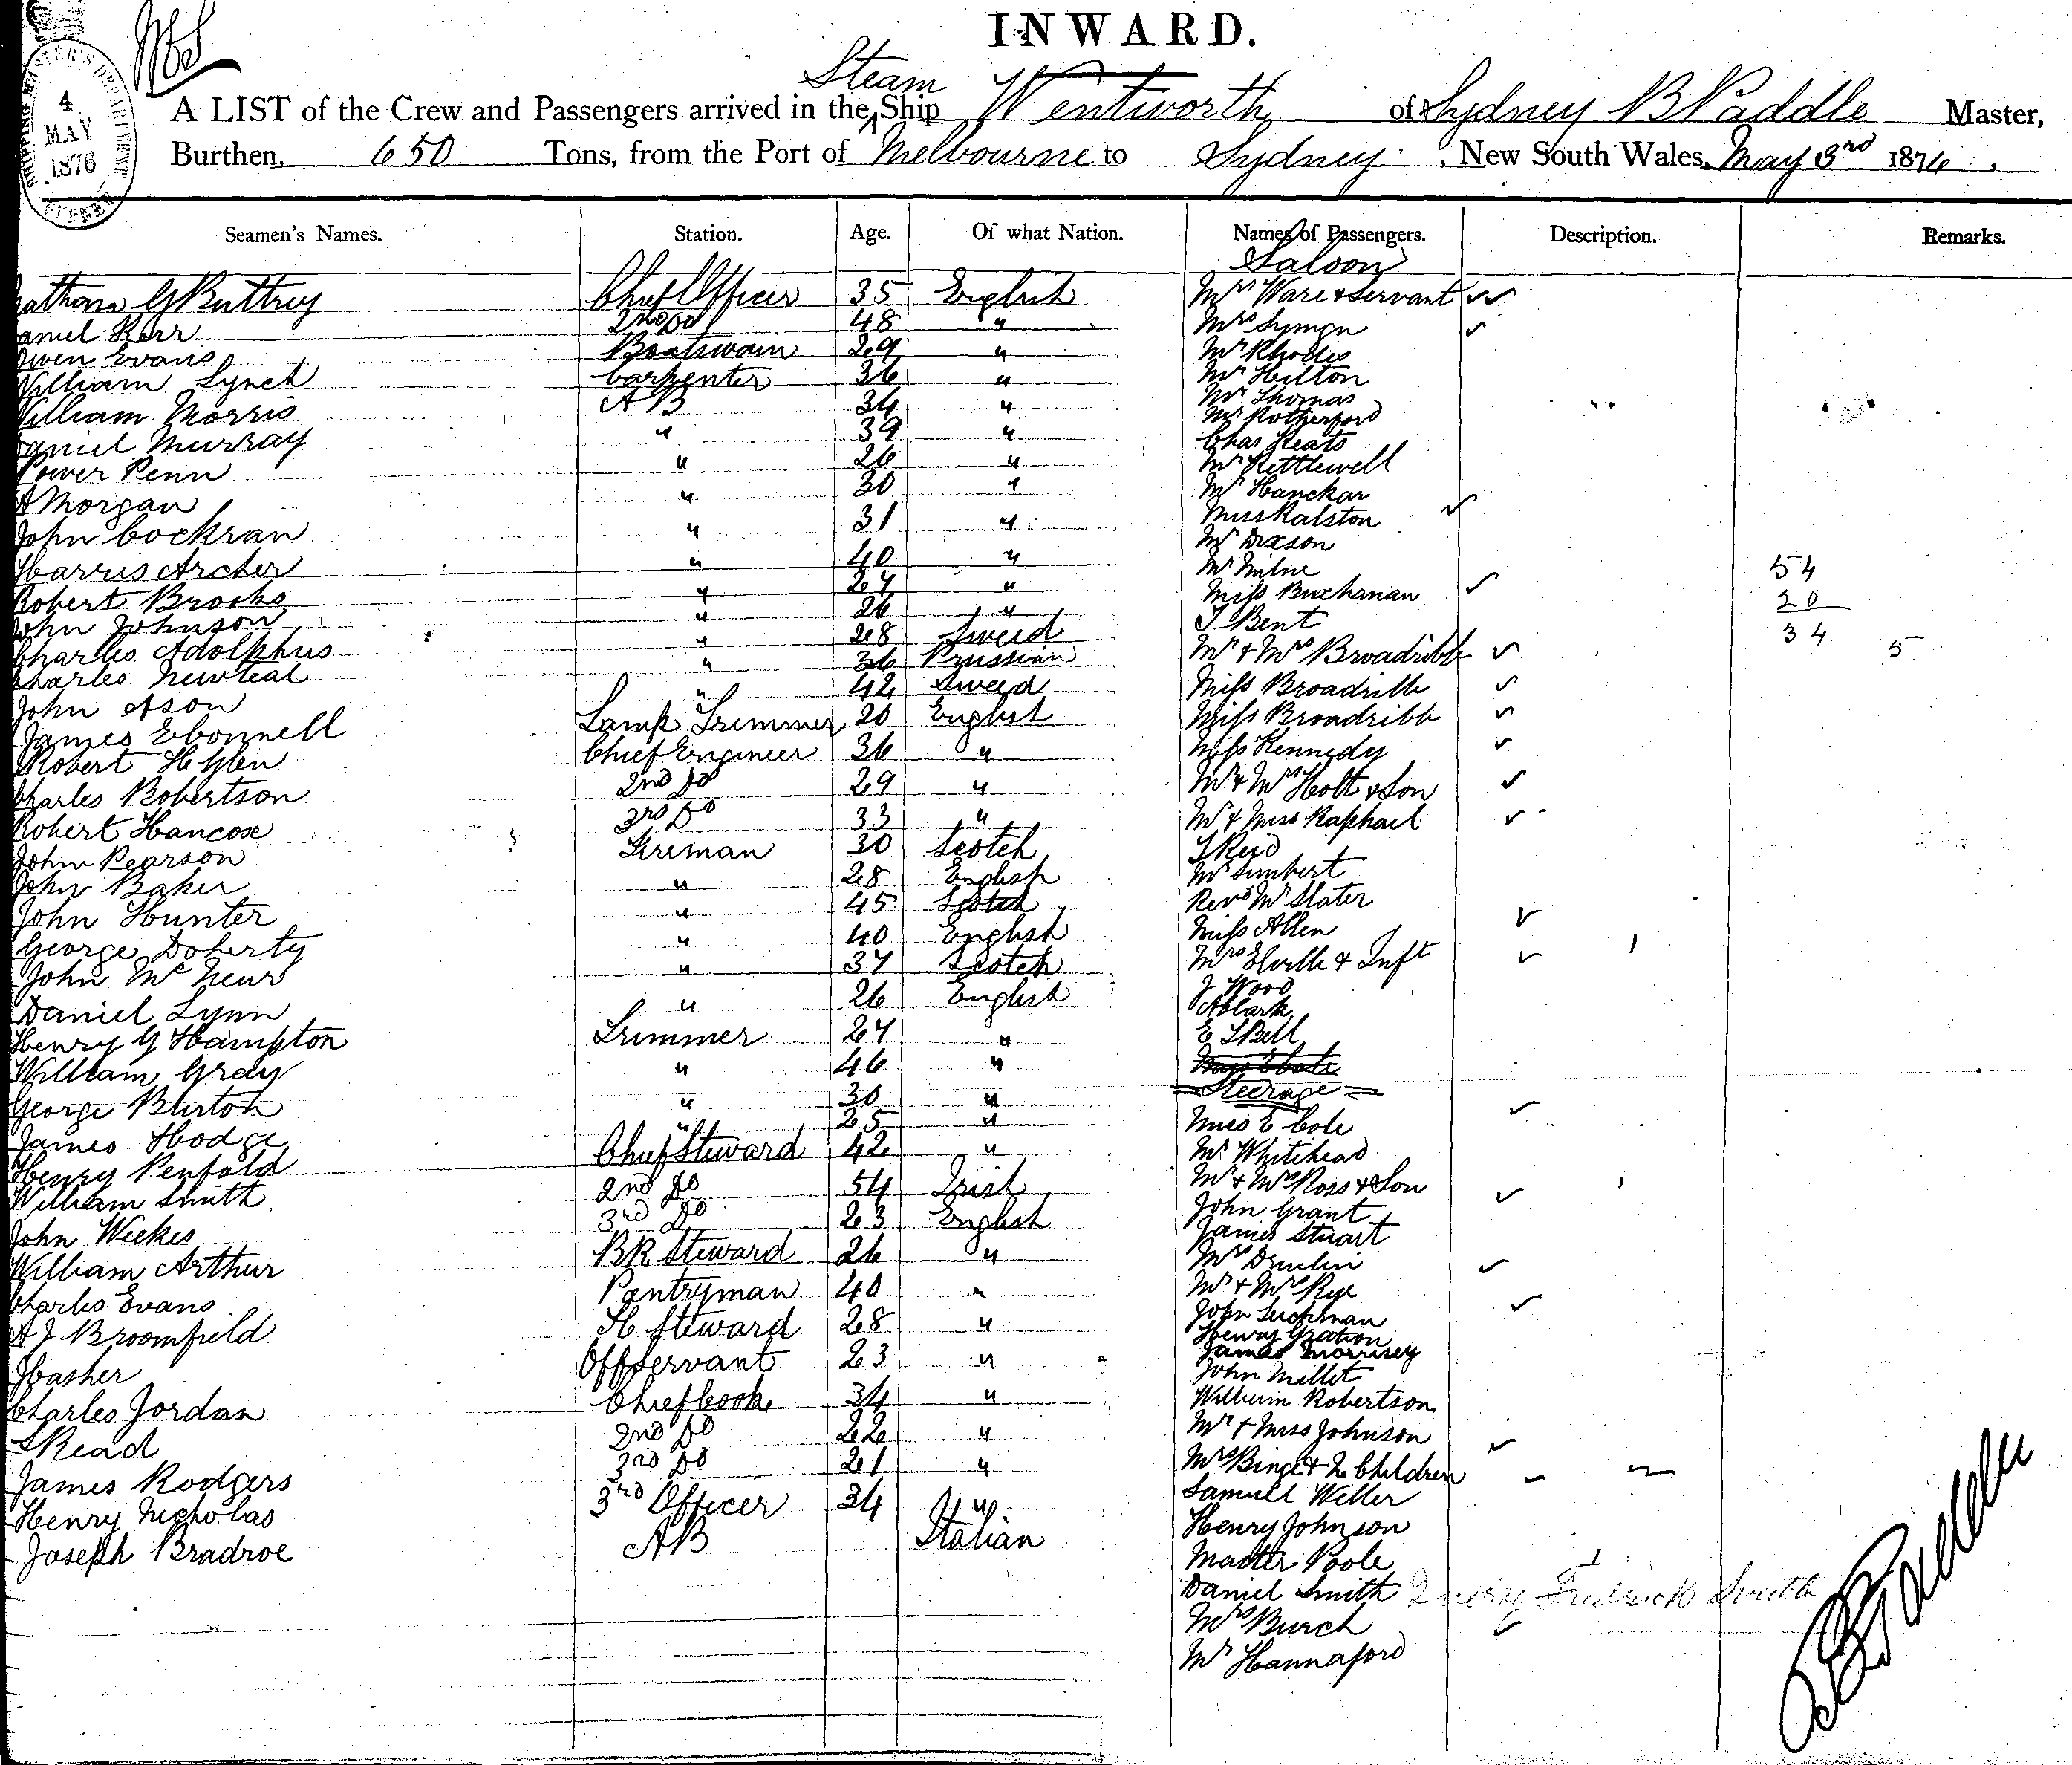 INWARD.
A LIST of the Crew and Passengers arrived in the Steam Ship Wentworth of Sydney B Paddle Master,
Burthen, 650 Tons, from the Port of Melbourne to Sydney, New South Wales, May 3rd 1876.
4 MAY 1876
Seamen's Names. Station. Age. Of what Nation. Names of Passengers. Description. Remarks.
Saloon
G Buttrey Chief Officer 35 English Mrs Ware & Servant
Kerr 2nd Do 48 " Mrs Symon
Owen Evans Boatswain 29 " Mr Rhodes
William Lynch Carpenter 36 " Mr Hilton
William Morris A B 34 " Mr Thomas
Daniel Murray " 39 " Mr Rotherford
Power Penn " 26 " Chas Keats
A Morgan " 30 " Mr Kettlewell
John Cockran " 31 " Mr Hanckar
Harris Archer " 40 " Miss Ralston
Robert Brooks " 27 " Mr Dixson
John Johnson " 26 " Mr Milne
Charles Adolphus " 28 Sweed Miss Buchanan
Charles Newteal " 36 Prussian J Bent
John Ason " 42 Sweed Mr & Mrs Broadribb
James Ebonnell Lamp Trimmer 20 English Miss Broadribb
Robert H Glen Chief Engineer 36 " Miss Broadribb
Charles Robertson 2nd Do 29 " Miss Kennedy
Robert Hancox 3rd Do 33 " Mr & Mrs Holt & Son
John Pearson Fireman 30 Scotch Mr & Miss Raphael
John Baker " 28 English J Reid
John Hunter " 45 Scotch Mr
George Doherty " 40 English Revd Mr Slater
John Mc " 37 Scotch Miss Allen
Daniel Lynn " 26 English Mrs & Inft
Henry G Hampton Trimmer 27 " J Wood
William Gray " 46 " A Clark
George Burton " 30 " E J Bell
James Hodge " 25 "
Steerage
Henry Penfold Chief Steward 42 " Miss E Cole
William Smith 2nd Do 54 Irish Mr Whitehead
John Weekes 3rd Do 23 English Mr & Mrs Ross & Son
William Arthur BR Steward 26 " John Grant
Charles Evans Pantryman 40 " James Stuart
A J Broomfield H Steward 28 " Mrs
J Casher Off Servant 23 " Mr & Mrs Rye
Charles Jordan Chief Cook 34 " John
S Read 2nd Do 22 " Henry Gration
James Rodgers 3rd Do 21 " James Morrisey
Henry Nicholas 3rd Officer 34 " John Millet
Joseph Bradroe AB Italian William Robertson
Mr & Miss Johnson
Mrs & 2 Children
Samuel Weller
Henry Johnson
Master Poole
Daniel Smith
Mrs Burch
Mr Hannaford
54
20
34 5